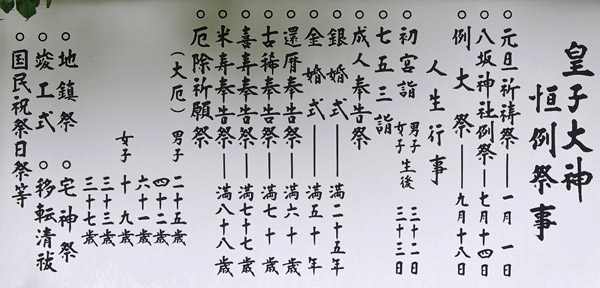 皇子大神
恒例祭事
○元旦祈祷祭――一月一日
○八坂神社例祭――七月十四日
○例大祭――九月十八日
人生行事
○初宮詣 男子生後 三十二日
女子 三十三日
○七五三詣
○成人奉告祭
○銀婚式――満二十五年
○金婚式――満五十年
○還暦奉告祭――満六十歳
○古稀奉告祭――満七十歳
○喜寿奉告祭――満七十七歳
○米寿奉告祭――満八十八歳
○厄除祈願祭
(大厄) 男子 二十五歳
四十二歳
六十一歳
女子 十九歳
三十三歳
三十七歳
○地鎮祭 ○宅神祭
○竣工式 ○移転清祓
○国民祝祭日祭等